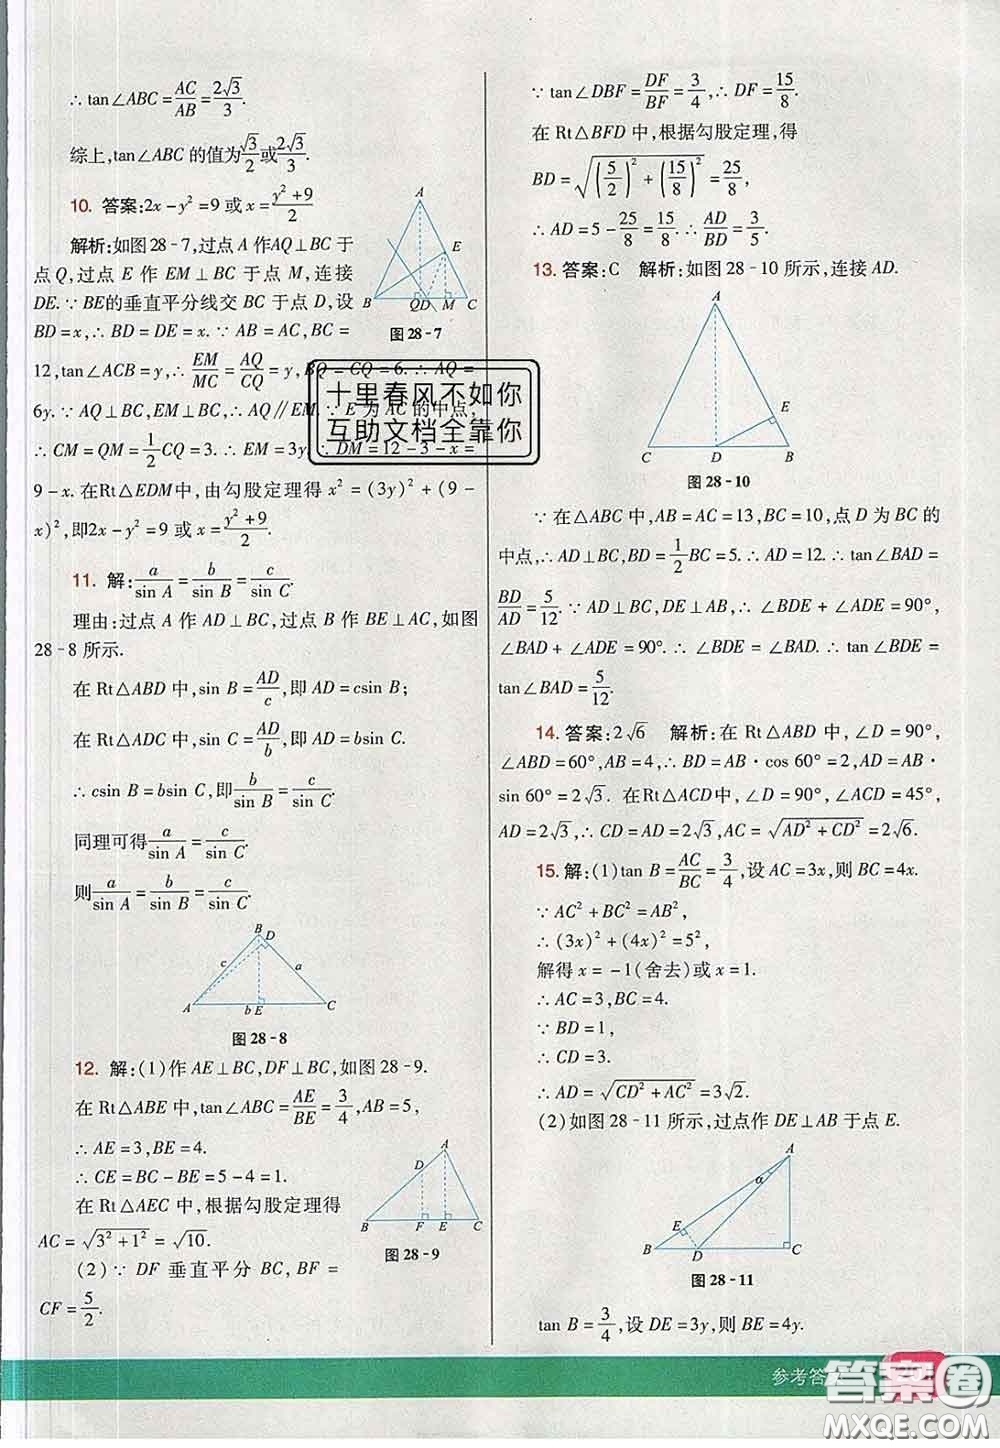 ∴ tan∠ABC = AC/AB = 2√3/3.
综上,tan∠ABC 的值为√3/2或2√3/3.
10. 答案:2x - y² = 9 或 x = (y² + 9)/2
解析:如图 28 - 7,过点 A 作AQ⊥BC 于
点 Q,过点 E 作 EM⊥BC 于点 M,连接
DE.∵ BE的垂直平分线交 BC 于点 D,设
BD = x,∴ BD = DE = x.∵ AB = AC,BC =
12,tan∠ACB = y,∴ EM/MC = AQ/CQ = y,BQ = CQ = 6.∴ AQ =
6y.∵ AQ⊥BC,EM⊥BC,∴ AQ∥EM.∵ E 为 AC 的中点,
∴ CM = QM = 1/2 CQ = 3.∴ EM = 3y.∴ DM = 12 - 3 - x =
9 - x. 在Rt△EDM中,由勾股定理得 x² = (3y)² + (9 -
x)²,即2x - y² = 9 或 x = (y² + 9)/2.
A
E
B
Q
D
M
C
图 28 - 7
11. 解:a/sin A = b/sin B = c/sin C.
理由:过点 A 作 AD⊥BC,过点 B 作 BE⊥AC,如图
28 - 8 所示.
在 Rt△ABD 中,sin B = AD/c,即 AD = csin B;
在 Rt△ADC 中,sin C = AD/b,即 AD = bsin C.
∴ csin B = bsin C,即 b/sin B = c/sin C.
同理可得 a/sin A = c/sin C.
则 a/sin A = b/sin B = c/sin C.
B
D
c
a
A
b
E
C
图 28 - 8
12. 解:(1)作 AE⊥BC,DF⊥BC,如图 28 - 9.
在 Rt△ABE 中,tan∠ABC = AE/BE = 3/4,AB = 5,
∴ AE = 3,BE = 4.
∴ CE = BC - BE = 5 - 4 = 1.
在 Rt△AEC 中,根据勾股定理得
AC = √(3² + 1²) = √10.
(2)∵ DF 垂直平分 BC,BF =
CF = 5/2.
A
D
B
F
E
C
图 28 - 9
∵ tan∠DBF = DF/BF = 3/4,∴ DF = 15/8.
在 Rt△BFD 中,根据勾股定理,得
BD = √((5/2)² + (15/8)²) = 25/8,
∴ AD = 5 - 25/8 = 15/8.∴ AD/BD = 3/5.
13. 答案:C 解析:如图 28 - 10 所示,连接 AD.
A
E
C
D
B
图 28 - 10
∵ 在△ABC 中,AB = AC = 13,BC = 10,点 D 为 BC 的
中点,∴ AD⊥BC,BD = 1/2 BC = 5.∴ AD = 12.∴ tan∠BAD =
BD/AD = 5/12.∵ AD⊥BC,DE⊥AB,∴ ∠BDE + ∠ADE = 90°,
∠BAD + ∠ADE = 90°.∴ ∠BDE = ∠BAD.∴ tan∠BDE =
tan∠BAD = 5/12.
14. 答案:2√6 解析:在 Rt△ABD 中,∠D = 90°,
∠ABD = 60°,AB = 4,∴ BD = AB · cos 60° = 2,AD = AB ·
sin 60° = 2√3. 在Rt△ACD中,∠D = 90°,∠ACD = 45°,
AD = 2√3,∴ CD = AD = 2√3,AC = √(AD² + CD²) = 2√6.
15. 解:(1)tan B = AC/BC = 3/4,设 AC = 3x,则 BC = 4x.
∵ AC² + BC² = AB²,
∴ (3x)² + (4x)² = 5²,
解得 x = -1(舍去)或 x = 1.
∴ AC = 3,BC = 4.
∵ BD = 1,
∴ CD = 3.
∴ AD = √(CD² + AC²) = 3√2.
(2)如图 28 - 11 所示,过点作 DE⊥AB 于点 E.
A
α
E
B
D
C
图 28 - 11
tan B = 3/4,设 DE = 3y,则 BE = 4y.
十里春风不如你
互助文档全靠你
参考答
答案卷
MXQE.COM